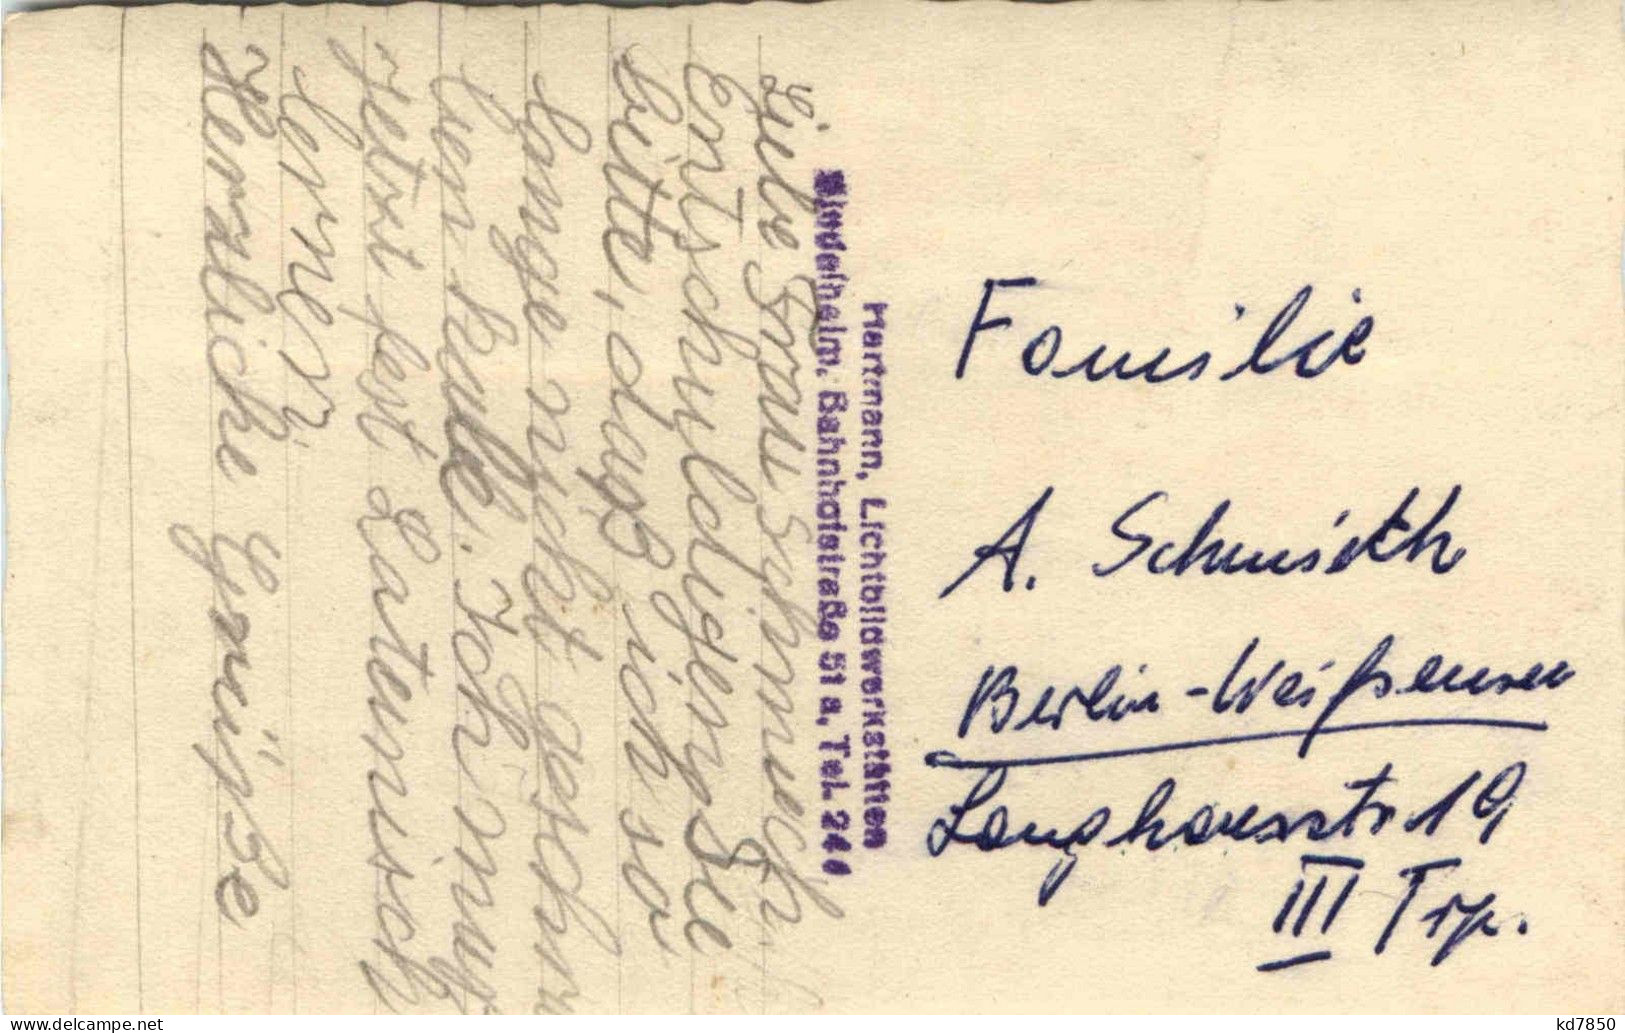 Liebe Frau Schmuch.
Entschuldigen Sie
bitte, daß ich so
lange nicht geschri
ben habe. Ich muß
jetzt fest Lateinisch
lernen.
Herzliche Grüße
Hartmann, Lichtbildwerkstätten
Mindelheim, Bahnhofstraße 51 a, Tel. 244
Familie
A. Schmidth
Berlin-Weißensee
Langhansstr 19
III Trp.
kd7850